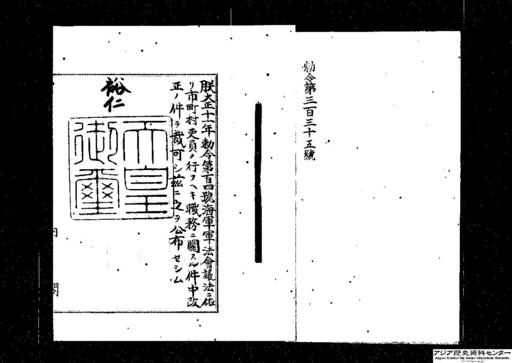 勅令第三百三十五號
朕大正十一年勅令第百四號海軍軍法會議法ニ依
リ市町村吏員ノ行フヘキ職務ニ關スル件中改
正ノ件ヲ裁可シ玆ニ之ヲ公布セシム
裕仁
天皇
御璽
内
閣
アジア歴史資料センター
Japan Center for Asian Historical Records